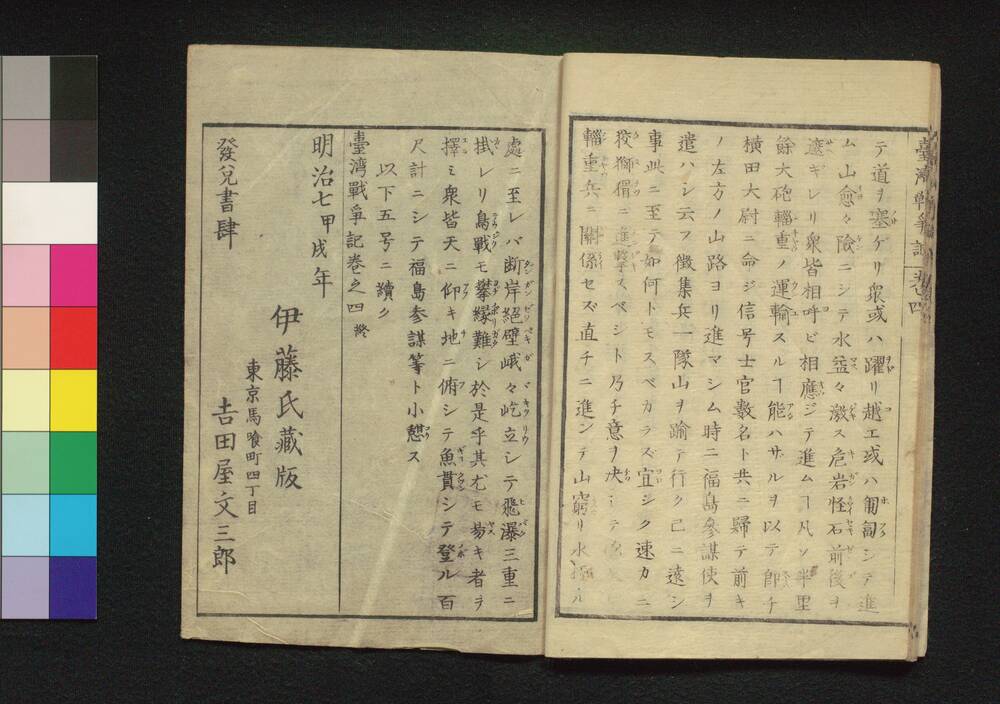 テ道ヲ塞ゲリ衆或ハ躍リ越エ或ハ匍匐シテ進
ム山愈々險ニシテ水益々激ス危岩怪石前後ヲ
遮ギレリ衆皆相呼ビ相應ジテ進ムヿ凡ソ半里
餘大砲輜重ノ運輸スルヿ能ハザルヲ以テ即チ
横田大尉ニ命ジ信号士官數名ト共ニ歸テ前キ
ノ左方ノ山路ヨリ進マシム時ニ福島參謀使ヲ
遣ハシ云フ徴集兵一隊山ヲ踰テ行ク已ニ遠シ
事此ニ至テ如何トモスベカラズ宜シク速カニ
狡獅猾ニ進撃スベシト乃チ意ヲ决シテ
輜重兵ニ關係セズ直チニ進ンデ山窮リ水極ル
處ニ至レバ断岸絕壁峨々屹立シテ飛瀑三重ニ
掛レリ鳥戦モ攀縁難シ於是乎其尤モ易キ者ヲ
擇ミ衆皆天ニ仰キ地ニ俯シテ魚貫シテ登ル百
尺計ニシテ福島参謀等ト小憇ス
以下五号ニ讀ク
臺湾戰爭記巻之四 終
明治七甲戌年
伊藤氏藏版
發兌書肆
東京馬喰町四丁目
吉田屋文三郎